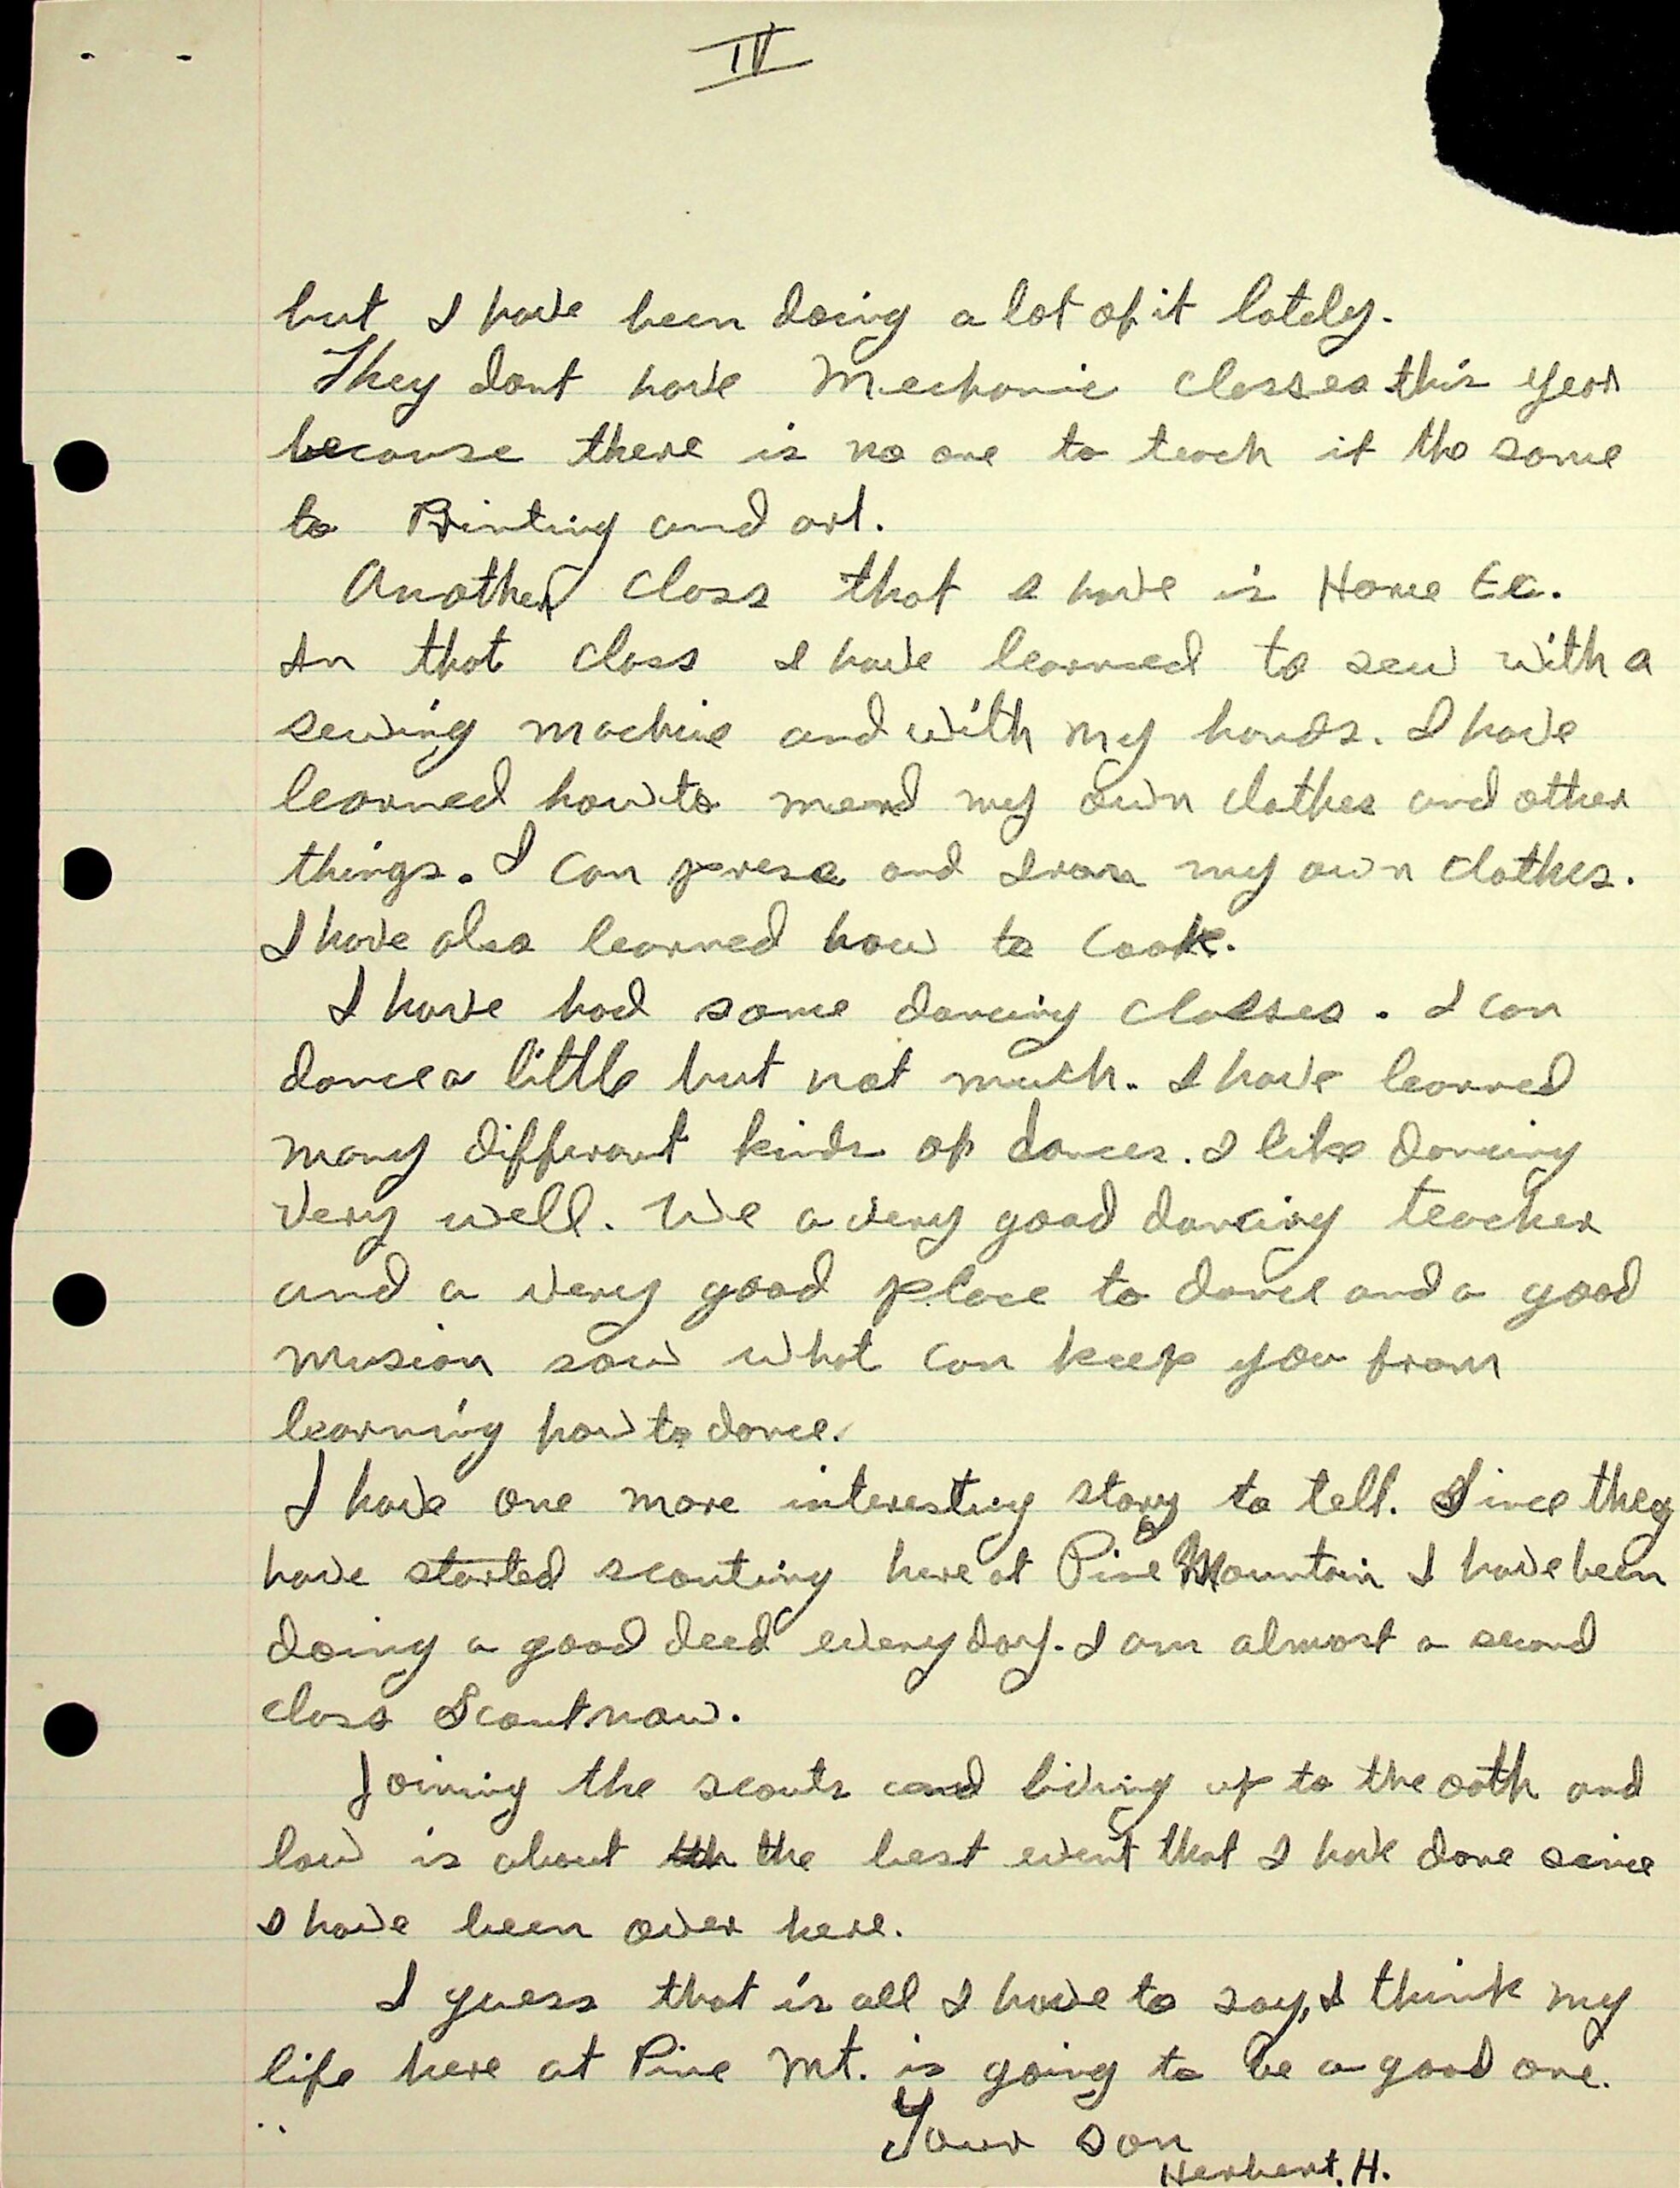 IV
but I have been doing a lot of it lately.
They dont have Mechanic classes this year
because there is no one to teach it the same
to Printing and art.
Another class that I have is Home Ec.
In that class I have learned to sew with a
sewing machine and with my hands. I have
learned how to mend my own clothes and other
things. I can press and Iron my own clothes.
I have also learned how to cook.
I have had some dancing classes. I can
dance a little but not much. I have learned
many different kinds of dances. I like dancing
very well. We a very good dancing teacher
and a very good place to dance and a good
musion sow what can keep you from
learning how to dance.
I have one more interesting story to tell. Since they
have started scouting here at Pine Mountain I have been
doing a good deed everyday. I am almost a second
class Scout now.
Joining the scouts and living up to the oath and
law is about the best event that I have done since
I have been over here.
I guess that is all I have to say, I think my
life here at Pine Mt. is going to be a good one.
Your son
Herbert. H.